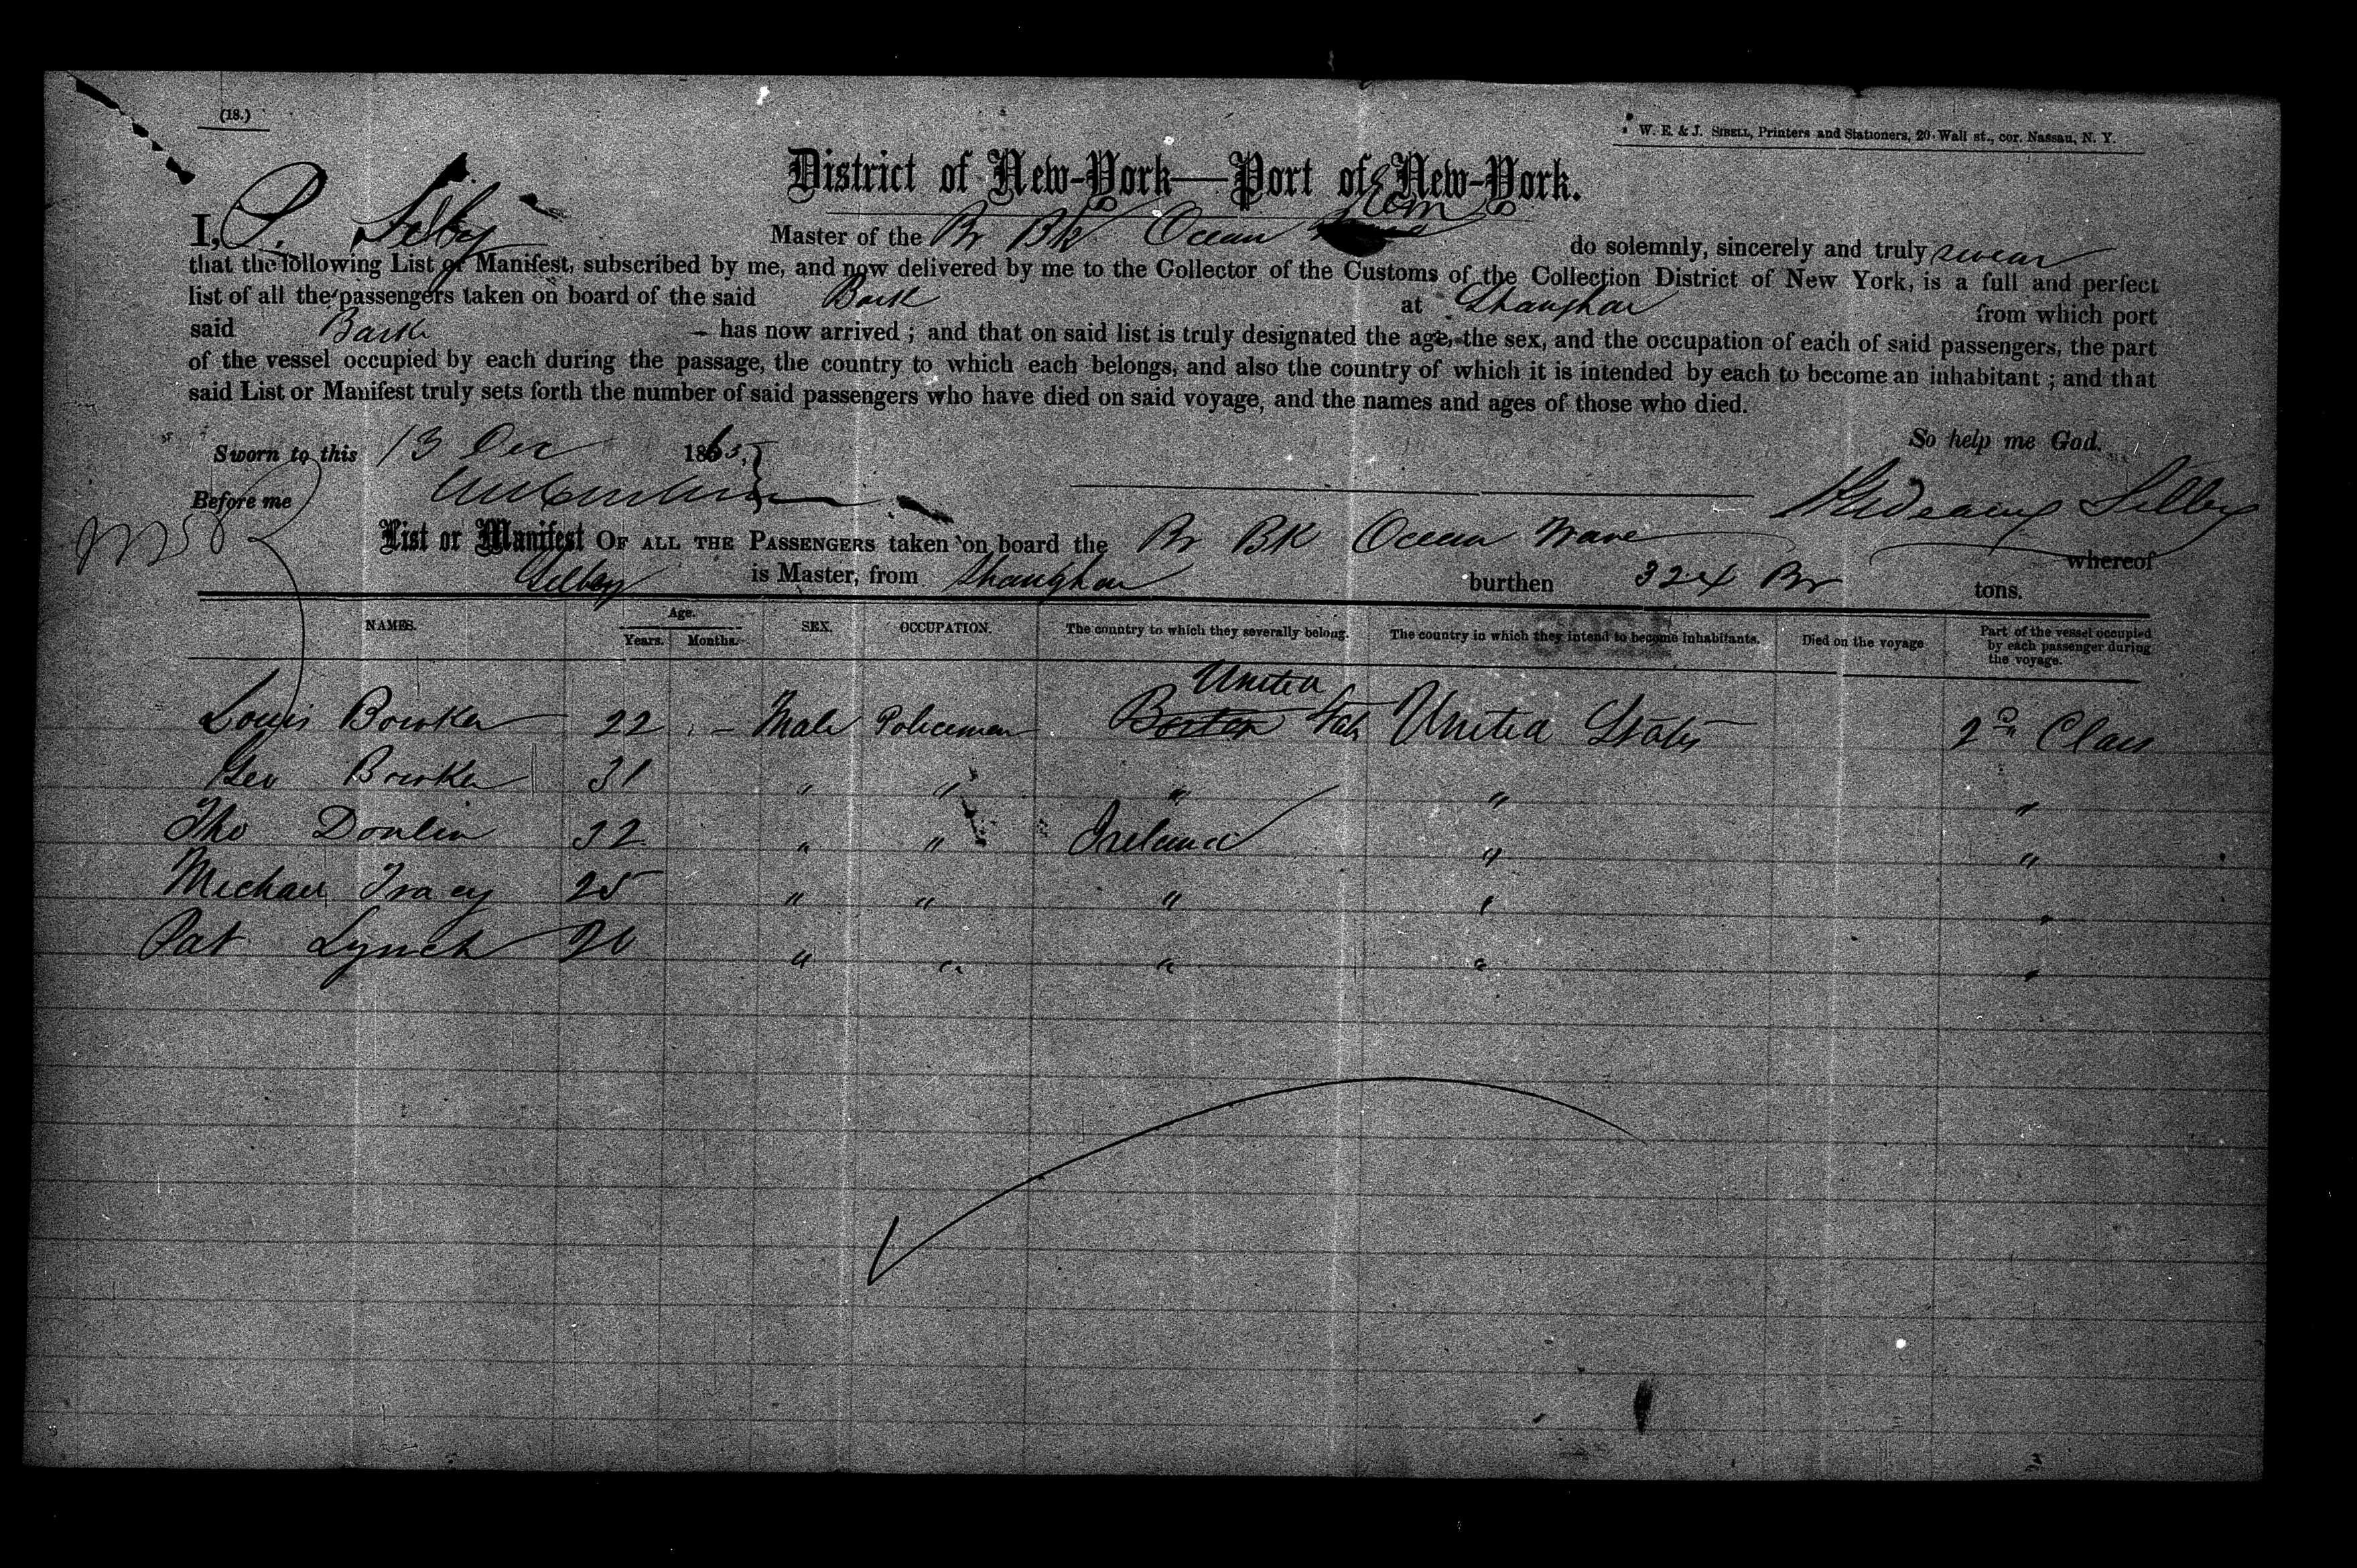 (18.)
W. E. & J. SIBELL, Printers and Stationers, 20 Wall st., cor. Nassau, N. Y.
District of New-York—Port of New-York.
I, P. Selby Master of the Br Bk Ocean do solemnly, sincerely and truly swear
that the following List or Manifest, subscribed by me, and now delivered by me to the Collector of the Customs of the Collection District of New York, is a full and perfect
list of all the passengers taken on board of the said Bark at Shanghae from which port
said Bark has now arrived ; and that on said list is truly designated the age, the sex, and the occupation of each of said passengers, the part
of the vessel occupied by each during the passage, the country to which each belongs, and also the country of which it is intended by each to become an inhabitant ; and that
said List or Manifest truly sets forth the number of said passengers who have died on said voyage, and the names and ages of those who died.
So help me God.
Sworn to this 13 Dec 1865,
Before me
Selby
List or Manifest OF ALL THE PASSENGERS taken on board the Br BK Ocean Wave whereof
Selby is Master, from Shanghae burthen 324 Br tons.
NAMES. Age. Years. Months. SEX. OCCUPATION. The country to which they severally belong. The country in which they intend to become inhabitants. Died on the voyage Part of the vessel occupied by each passenger during the voyage.
Louis Bowker 22 - Male Policeman Boston United States United States 2nd Class
Geo Bowker 31 " " " " "
Tho Donlin 32 " " Ireland " "
Michael Tracy 25 " " " " "
Pat Lynch " " " " "